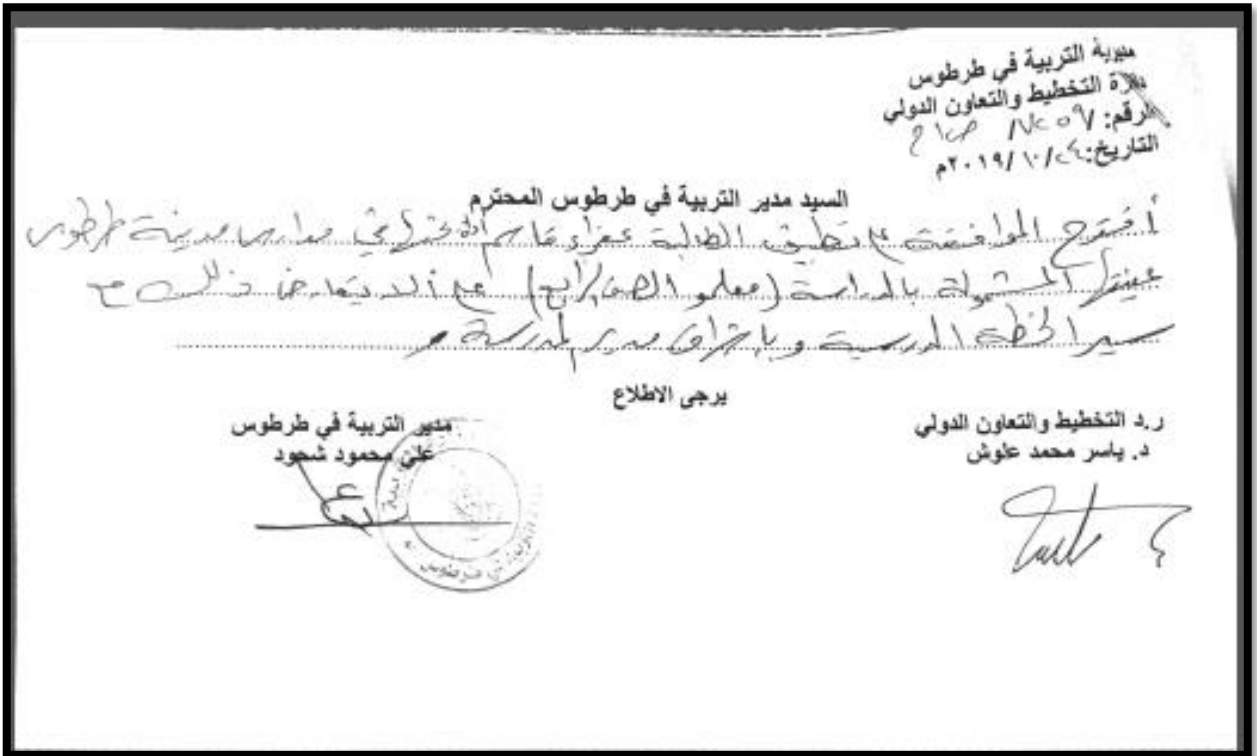 مديرية التربية في طرطوس
دائرة التخطيط والتعاون الدولي
الرقم:
التاريخ: ٢٤/١٠/٢٠١٩م
السيد مدير التربية في طرطوس المحترم
أقترح الموافقة على تطبيق الطالبة عفراء قاسم في مدارس مدينة طرطوس
عينتها المشمولة بالدراسة (معلمو الصف الرابع) على ألا يتعارض ذلك مع
سير الخطة الدرسية وبإشراف مدير المدرسة
يرجى الاطلاع
ر.د التخطيط والتعاون الدولي
د. ياسر محمد علوش
مدير التربية في طرطوس
علي محمود شحود